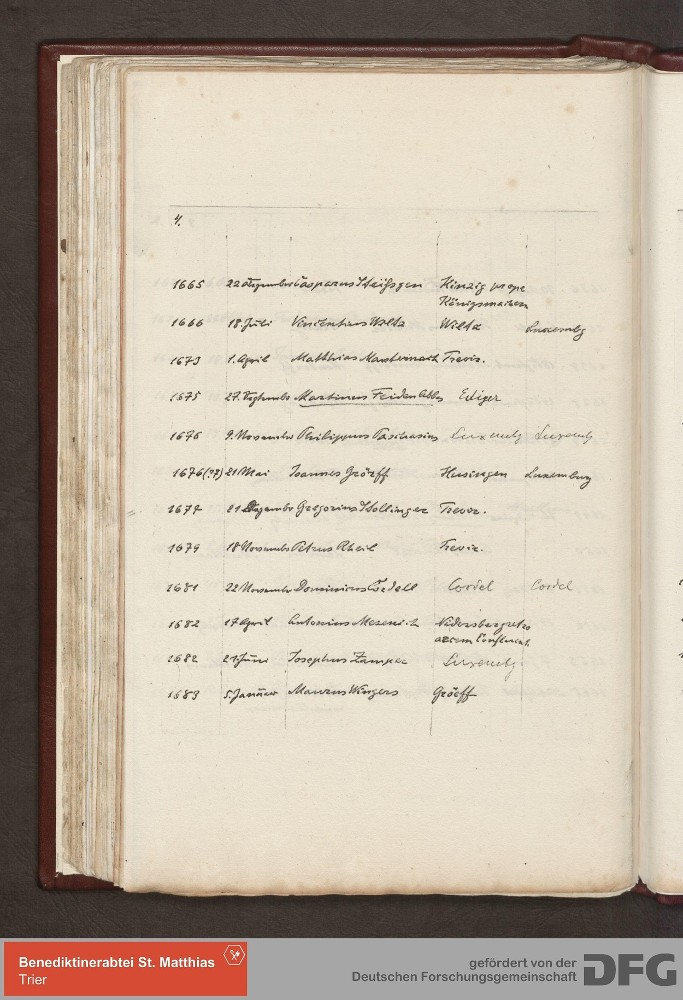 4.
1665 22 Dezember Casparus Kinzig prope
Königsmachern
1666 18. Juli Vincentius Wiltz Wiltz Luxembg
1673 1. April Matthias Trevir.
1675 27. Septembr Martinus Ediger
1676 9. November Philippus Luxembg Luxembg
1676(?7) 21 Mai Joannes Gröeff Husingen Luxemburg
1677 21 Dezembr Gregorius Hollinger Trevir.
1679 18 Novembr Petrus Rheil Trevir.
1681 22 Novembr Dominicus Cordel Cordel
1682 17 April Antonius Mesenich
arcem Confluent.
1682 21 Juni Josephus Luxembg
1683 5. Januar Maurus Wingers Gröeff
Benediktinerabtei St. Matthias
Trier
gefördert von der
Deutschen Forschungsgemeinschaft DFG